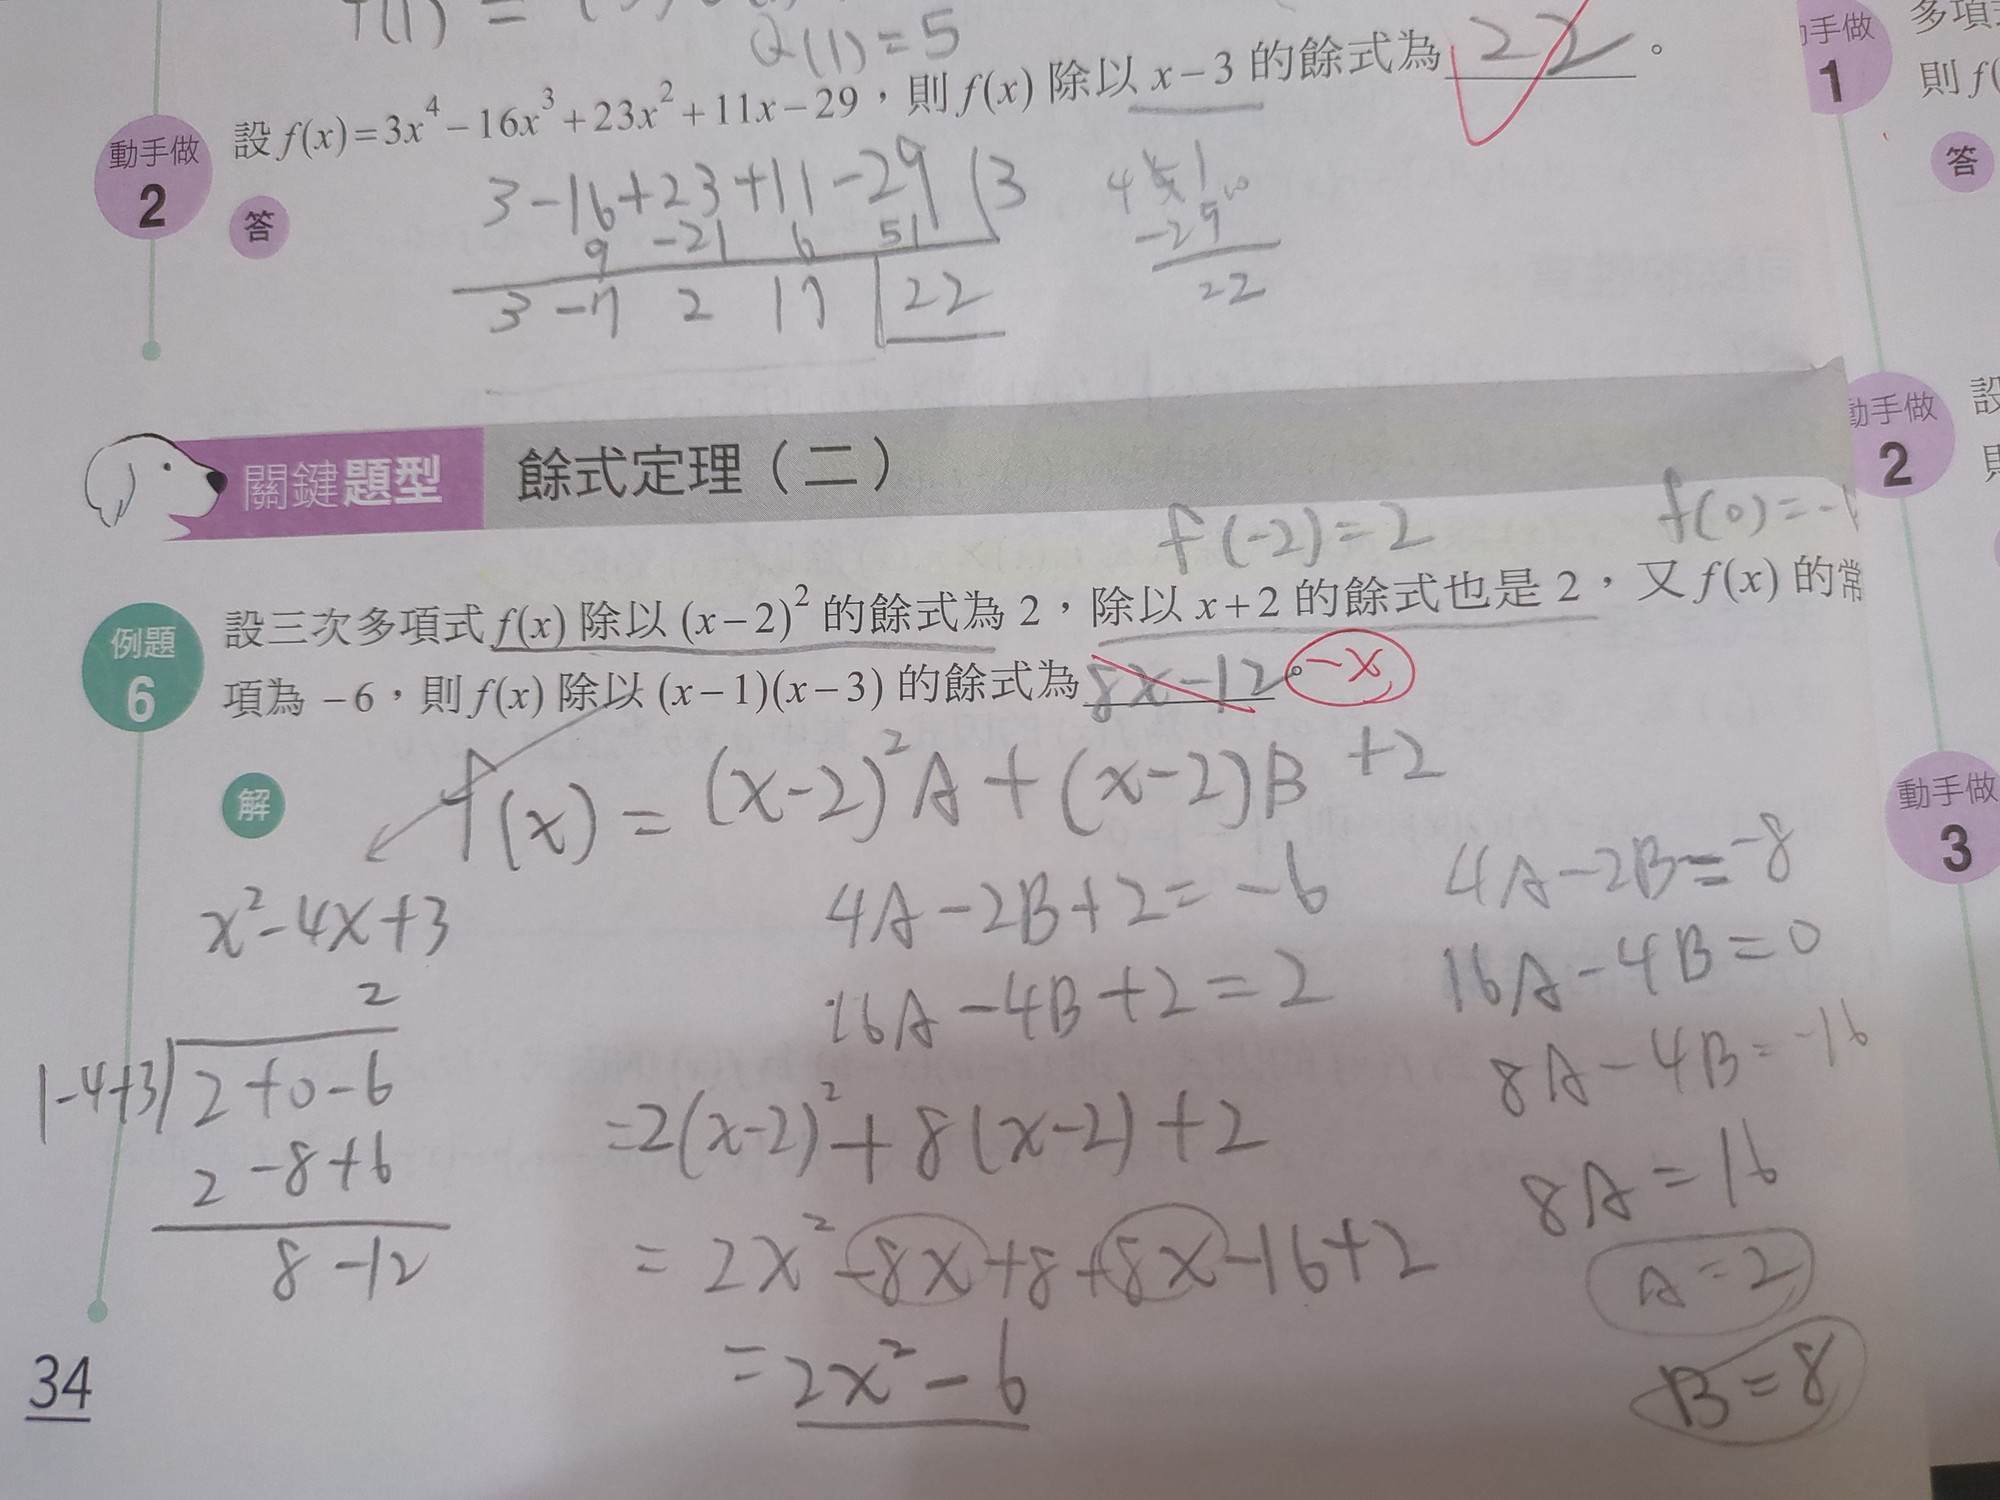 Q(1)=5
動手做 2
設 f(x)=3x⁴−16x³+23x²+11x−29，則 f(x) 除以 x−3 的餘式為 22 。
答
3-16+23+11-29 3
9 -21 6 51
3 -7 2 17 22
-29
22
關鍵題型 餘式定理（二）
f(-2)=2
例題 6
設三次多項式 f(x) 除以 (x−2)² 的餘式為 2，除以 x+2 的餘式也是 2，又 f(x) 的常
項為 −6，則 f(x) 除以 (x−1)(x−3) 的餘式為 8x-12 。 -x
解
f(x) = (x-2)²A + (x-2)B +2
4A-2B+2=-6
16A-4B+2=2
4A-2B=-8
16A-4B=0
8A-4B=-16
8A=16
A=2
B=8
=2(x-2)²+8(x-2)+2
=2x²-8x+8+8x-16+2
=2x²-6
x²-4x+3
2
1-4+3 2+0-6
2-8+6
8-12
34
動手做 1
則 f(
答
動手做 2
設
動手做 3